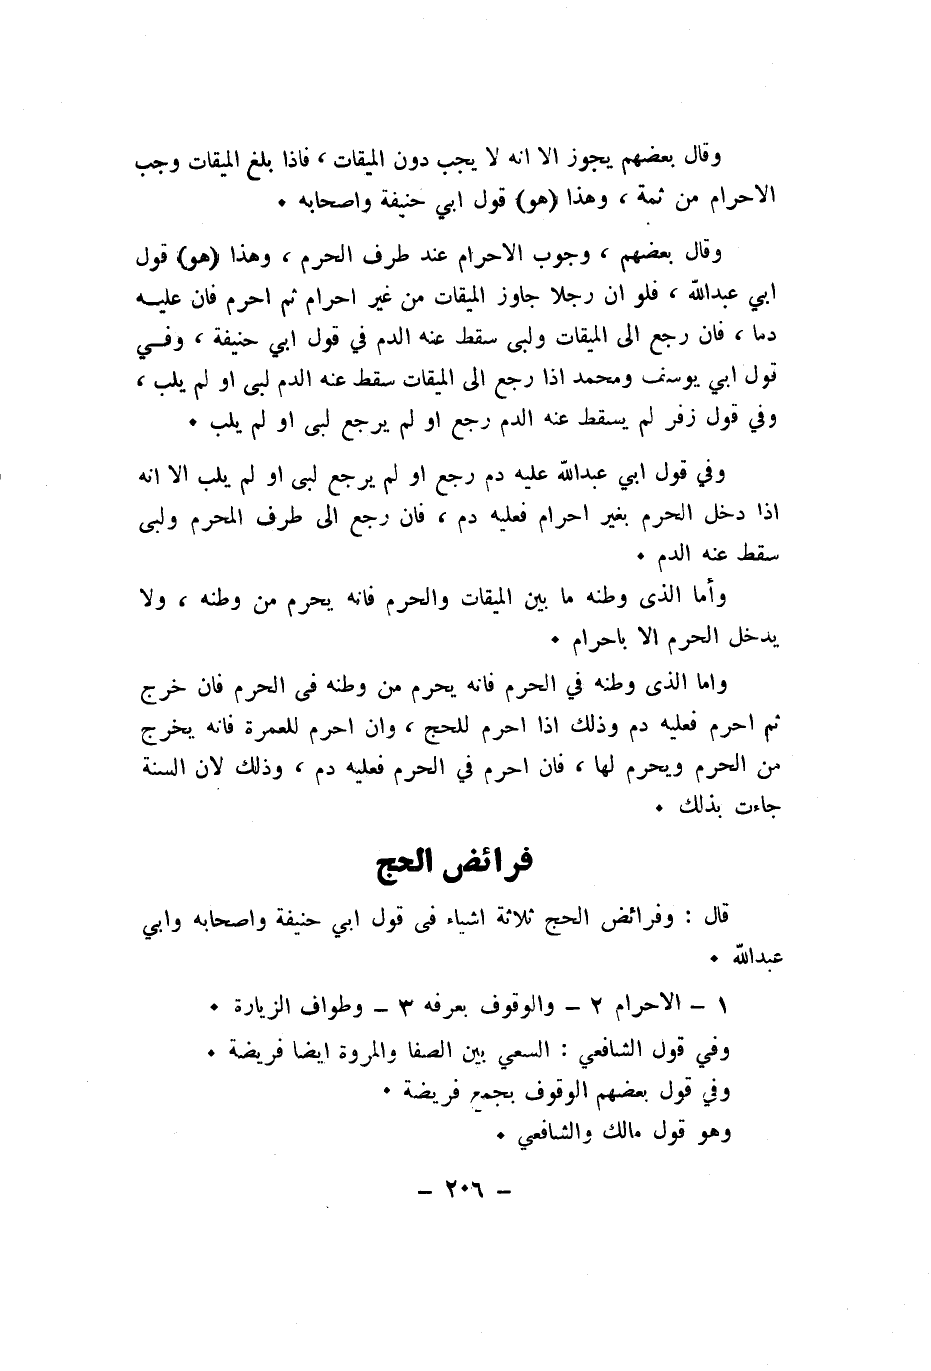 وقال بعضهم يجوز الا انه لا يجب دون الميقات ، فاذا بلغ الميقات وجب
الاحرام من ثمة ، وهذا (هو) قول ابي حنيفة واصحابه •
وقال بعضهم ، وجوب الاحرام عند طرف الحرم ، وهذا (هو) قول
ابي عبدالله ، فلو ان رجلا جاوز الميقات من غير احرام ثم احرم فان عليه
دما ، فان رجع الى الميقات ولبى سقط عنه الدم في قول ابي حنيفة ، وفي
قول ابي يوسف ومحمد اذا رجع الى الميقات سقط عنه الدم لبى او لم يلب ،
وفي قول زفر لم يسقط عنه الدم رجع او لم يرجع لبى او لم يلب •
وفي قول ابي عبدالله عليه دم رجع او لم يرجع لبى او لم يلب الا انه
اذا دخل الحرم بغير احرام فعليه دم ، فان رجع الى طرف المحرم ولبى
سقط عنه الدم •
وأما الذى وطنه ما بين الميقات والحرم فانه يحرم من وطنه ، ولا
يدخل الحرم الا باحرام •
واما الذى وطنه في الحرم فانه يحرم من وطنه فى الحرم فان خرج
ثم احرم فعليه دم وذلك اذا احرم للحج ، وان احرم للعمرة فانه يخرج
من الحرم ويحرم لها ، فان احرم في الحرم فعليه دم ، وذلك لان السنة
جاءت بذلك •
فرائض الحج
قال : وفرائض الحج ثلاثة اشياء فى قول ابي حنيفة واصحابه وابي
عبدالله •
١ – الاحرام ٢ – والوقوف بعرفه ٣ – وطواف الزيارة •
وفي قول الشافعي : السعي بين الصفا والمروة ايضا فريضة •
وفي قول بعضهم الوقوف بجمع فريضة •
وهو قول مالك والشافعي •
– ٢٠٦ –